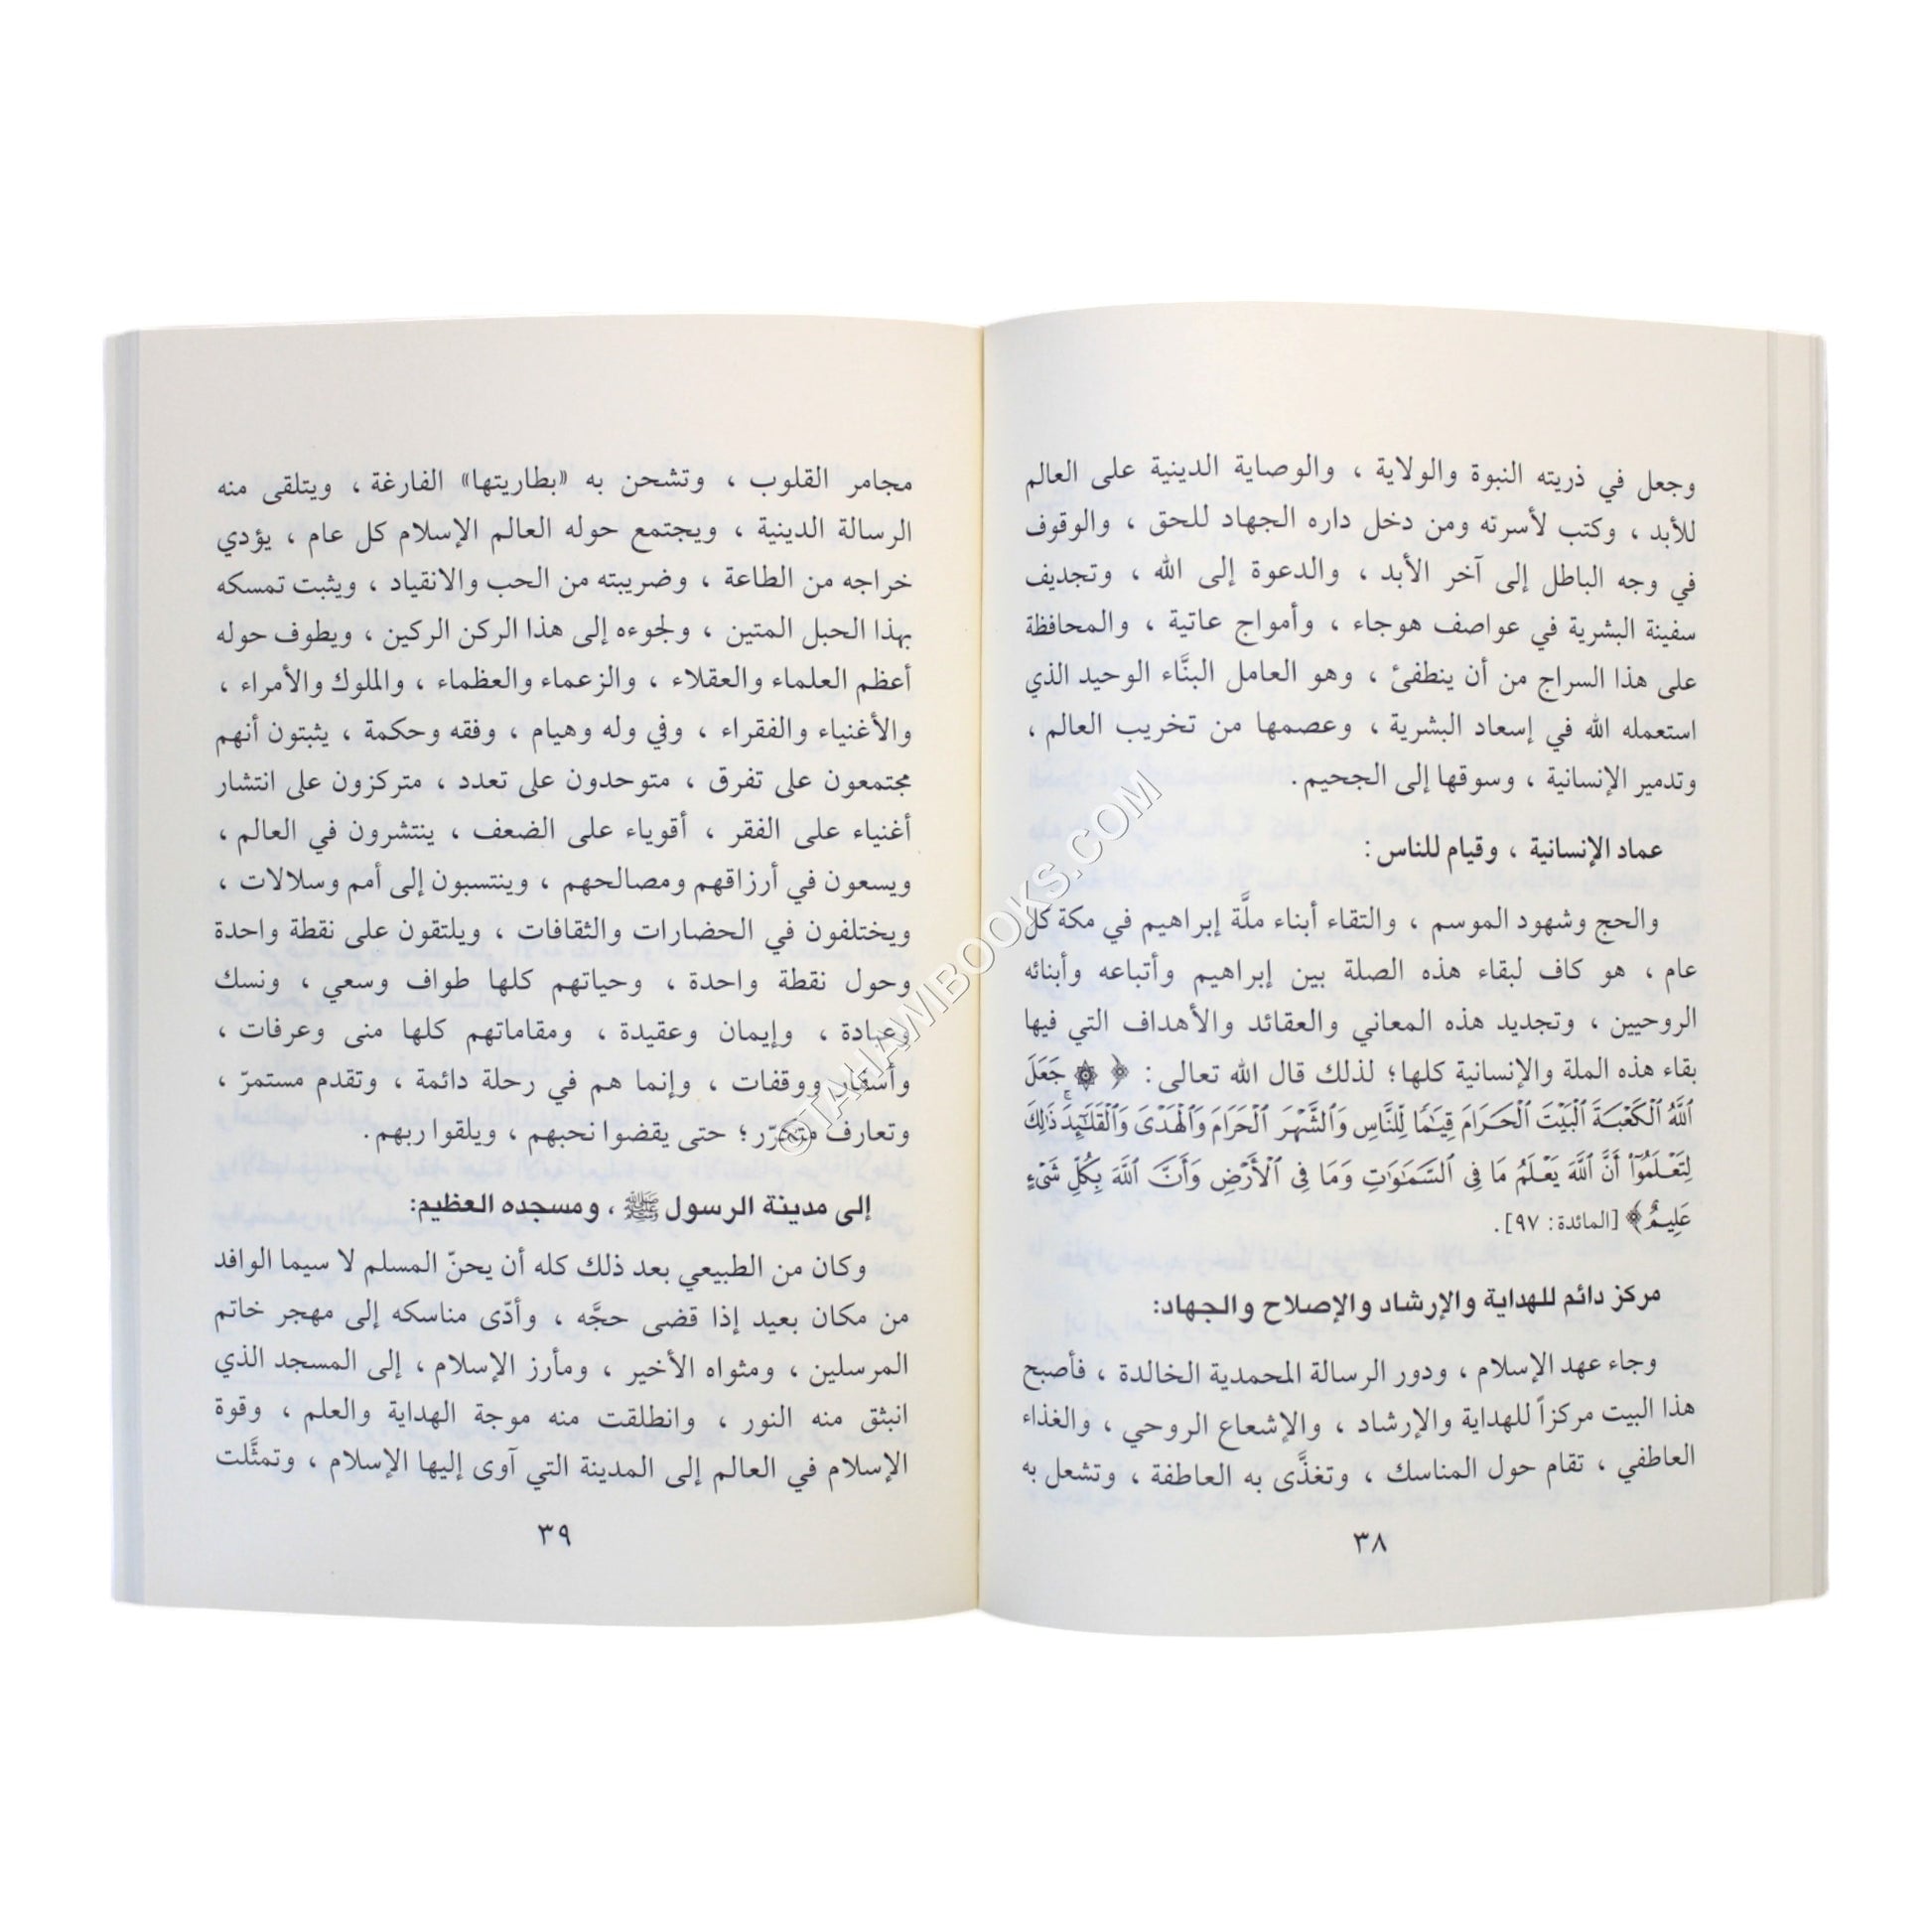 وجعل في ذريته النبوة والولاية ، والوصاية الدينية على العالم
للأبد ، وكتب لأسرته ومن دخل داره الجهاد للحق ، والوقوف
في وجه الباطل إلى آخر الأبد ، والدعوة إلى الله ، وتجديف
سفينة البشرية في عواصف هوجاء ، وأمواج عاتية ، والمحافظة
على هذا السراج من أن ينطفئ ، وهو العامل البنَّاء الوحيد الذي
استعمله الله في إسعاد البشرية ، وعصمها من تخريب العالم ،
وتدمير الإنسانية ، وسوقها إلى الجحيم.
عماد الإنسانية ، وقيام للناس:
والحج وشهود الموسم ، والتقاء أبناء ملَّة إبراهيم في مكة كل
عام ، هو كاف لبقاء هذه الصلة بين إبراهيم وأتباعه وأبنائه
الروحيين ، وتجديد هذه المعاني والعقائد والأهداف التي فيها
بقاء هذه الملة والإنسانية كلها؛ لذلك قال الله تعالى: ﴿ ۞ جَعَلَ
اللَّهُ الْكَعْبَةَ الْبَيْتَ الْحَرَامَ قِيَامًا لِّلنَّاسِ وَالشَّهْرَ الْحَرَامَ وَالْهَدْيَ وَالْقَلَائِدَ ذَٰلِكَ
لِتَعْلَمُوا أَنَّ اللَّهَ يَعْلَمُ مَا فِي السَّمَاوَاتِ وَمَا فِي الْأَرْضِ وَأَنَّ اللَّهَ بِكُلِّ شَيْءٍ
عَلِيمٌ﴾ [المائدة: ٩٧].
مركز دائم للهداية والإرشاد والإصلاح والجهاد:
وجاء عهد الإسلام ، ودور الرسالة المحمدية الخالدة ، فأصبح
هذا البيت مركزاً للهداية والإرشاد ، والإشعاع الروحي ، والغذاء
العاطفي ، تقام حول المناسك ، وتغذَّى به العاطفة ، وتشعل به
٣٨
مجامر القلوب ، وتشحن به «بطاريتها» الفارغة ، ويتلقى منه
الرسالة الدينية ، ويجتمع حوله العالم الإسلام كل عام ، يؤدي
خراجه من الطاعة ، وضريبته من الحب والانقياد ، ويثبت تمسكه
بهذا الحبل المتين ، ولجوءه إلى هذا الركن الركين ، ويطوف حوله
أعظم العلماء والعقلاء ، والزعماء والعظماء ، والملوك والأمراء ،
والأغنياء والفقراء ، وفي وله وهيام ، وفقه وحكمة ، يثبتون أنهم
مجتمعون على تفرق ، متوحدون على تعدد ، متركزون على انتشار
أغنياء على الفقر ، أقوياء على الضعف ، ينتشرون في العالم ،
ويسعون في أرزاقهم ومصالحهم ، وينتسبون إلى أمم وسلالات ،
ويختلفون في الحضارات والثقافات ، ويلتقون على نقطة واحدة
وحول نقطة واحدة ، وحياتهم كلها طواف وسعي ، ونسك
وعبادة ، وإيمان وعقيدة ، ومقاماتهم كلها منى وعرفات ،
وأسفار ووقفات ، وإنما هم في رحلة دائمة ، وتقدم مستمرّ ،
وتعارف متكرّر؛ حتى يقضوا نحبهم ، ويلقوا ربهم.
إلى مدينة الرسول ﷺ ، ومسجده العظيم:
وكان من الطبيعي بعد ذلك كله أن يحنّ المسلم لا سيما الوافد
من مكان بعيد إذا قضى حجَّه ، وأدّى مناسكه إلى مهجر خاتم
المرسلين ، ومثواه الأخير ، ومأرز الإسلام ، إلى المسجد الذي
انبثق منه النور ، وانطلقت منه موجة الهداية والعلم ، وقوة
الإسلام في العالم إلى المدينة التي آوى إليها الإسلام ، وتمثَّلت
٣٩
©TAHAWIBOOKS.COM